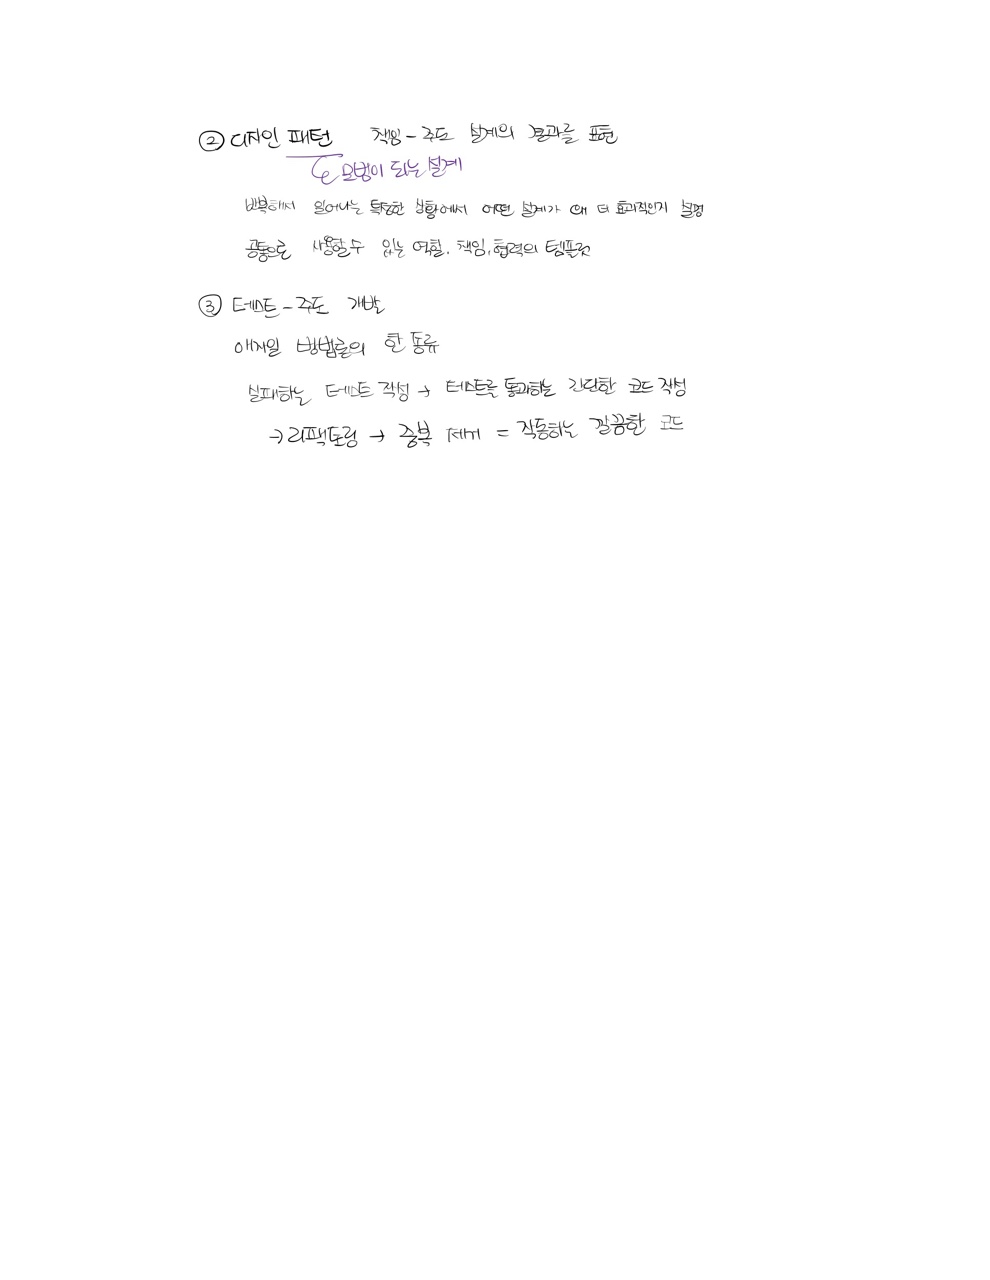 ② 디자인 패턴 책임-주도 설계의 결과를 표현
모범이 되는 설계
반복해서 일어나는 특정한 상황에서 어떤 설계가 왜 더 효과적인지 설명
공통으로 사용할 수 있는 역할, 책임, 협력의 템플릿
③ 테스트-주도 개발
애자일 방법론의 한 종류
실패하는 테스트 작성 → 테스트를 통과하는 간단한 코드 작성
→ 리팩토링 → 중복 제거 = 작동하는 깔끔한 코드